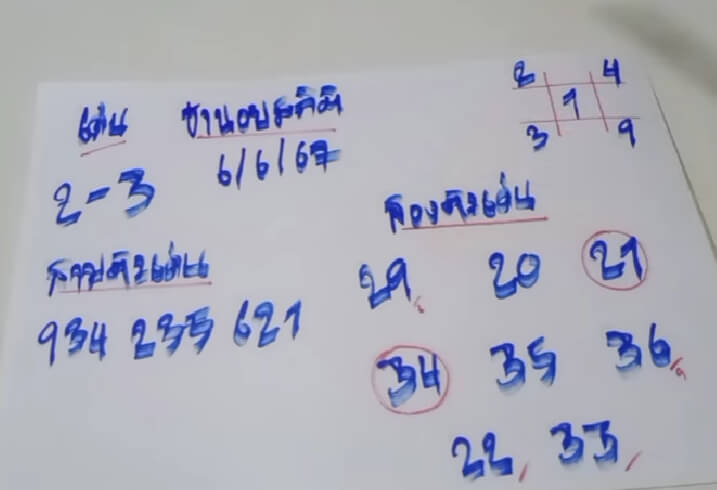 เด่น
2-3
6/6/67
สามตัวเด่น
934 235 621
2 4
1
3 9
สองตัวเด่น
29 20 21
34 35 36
22 33